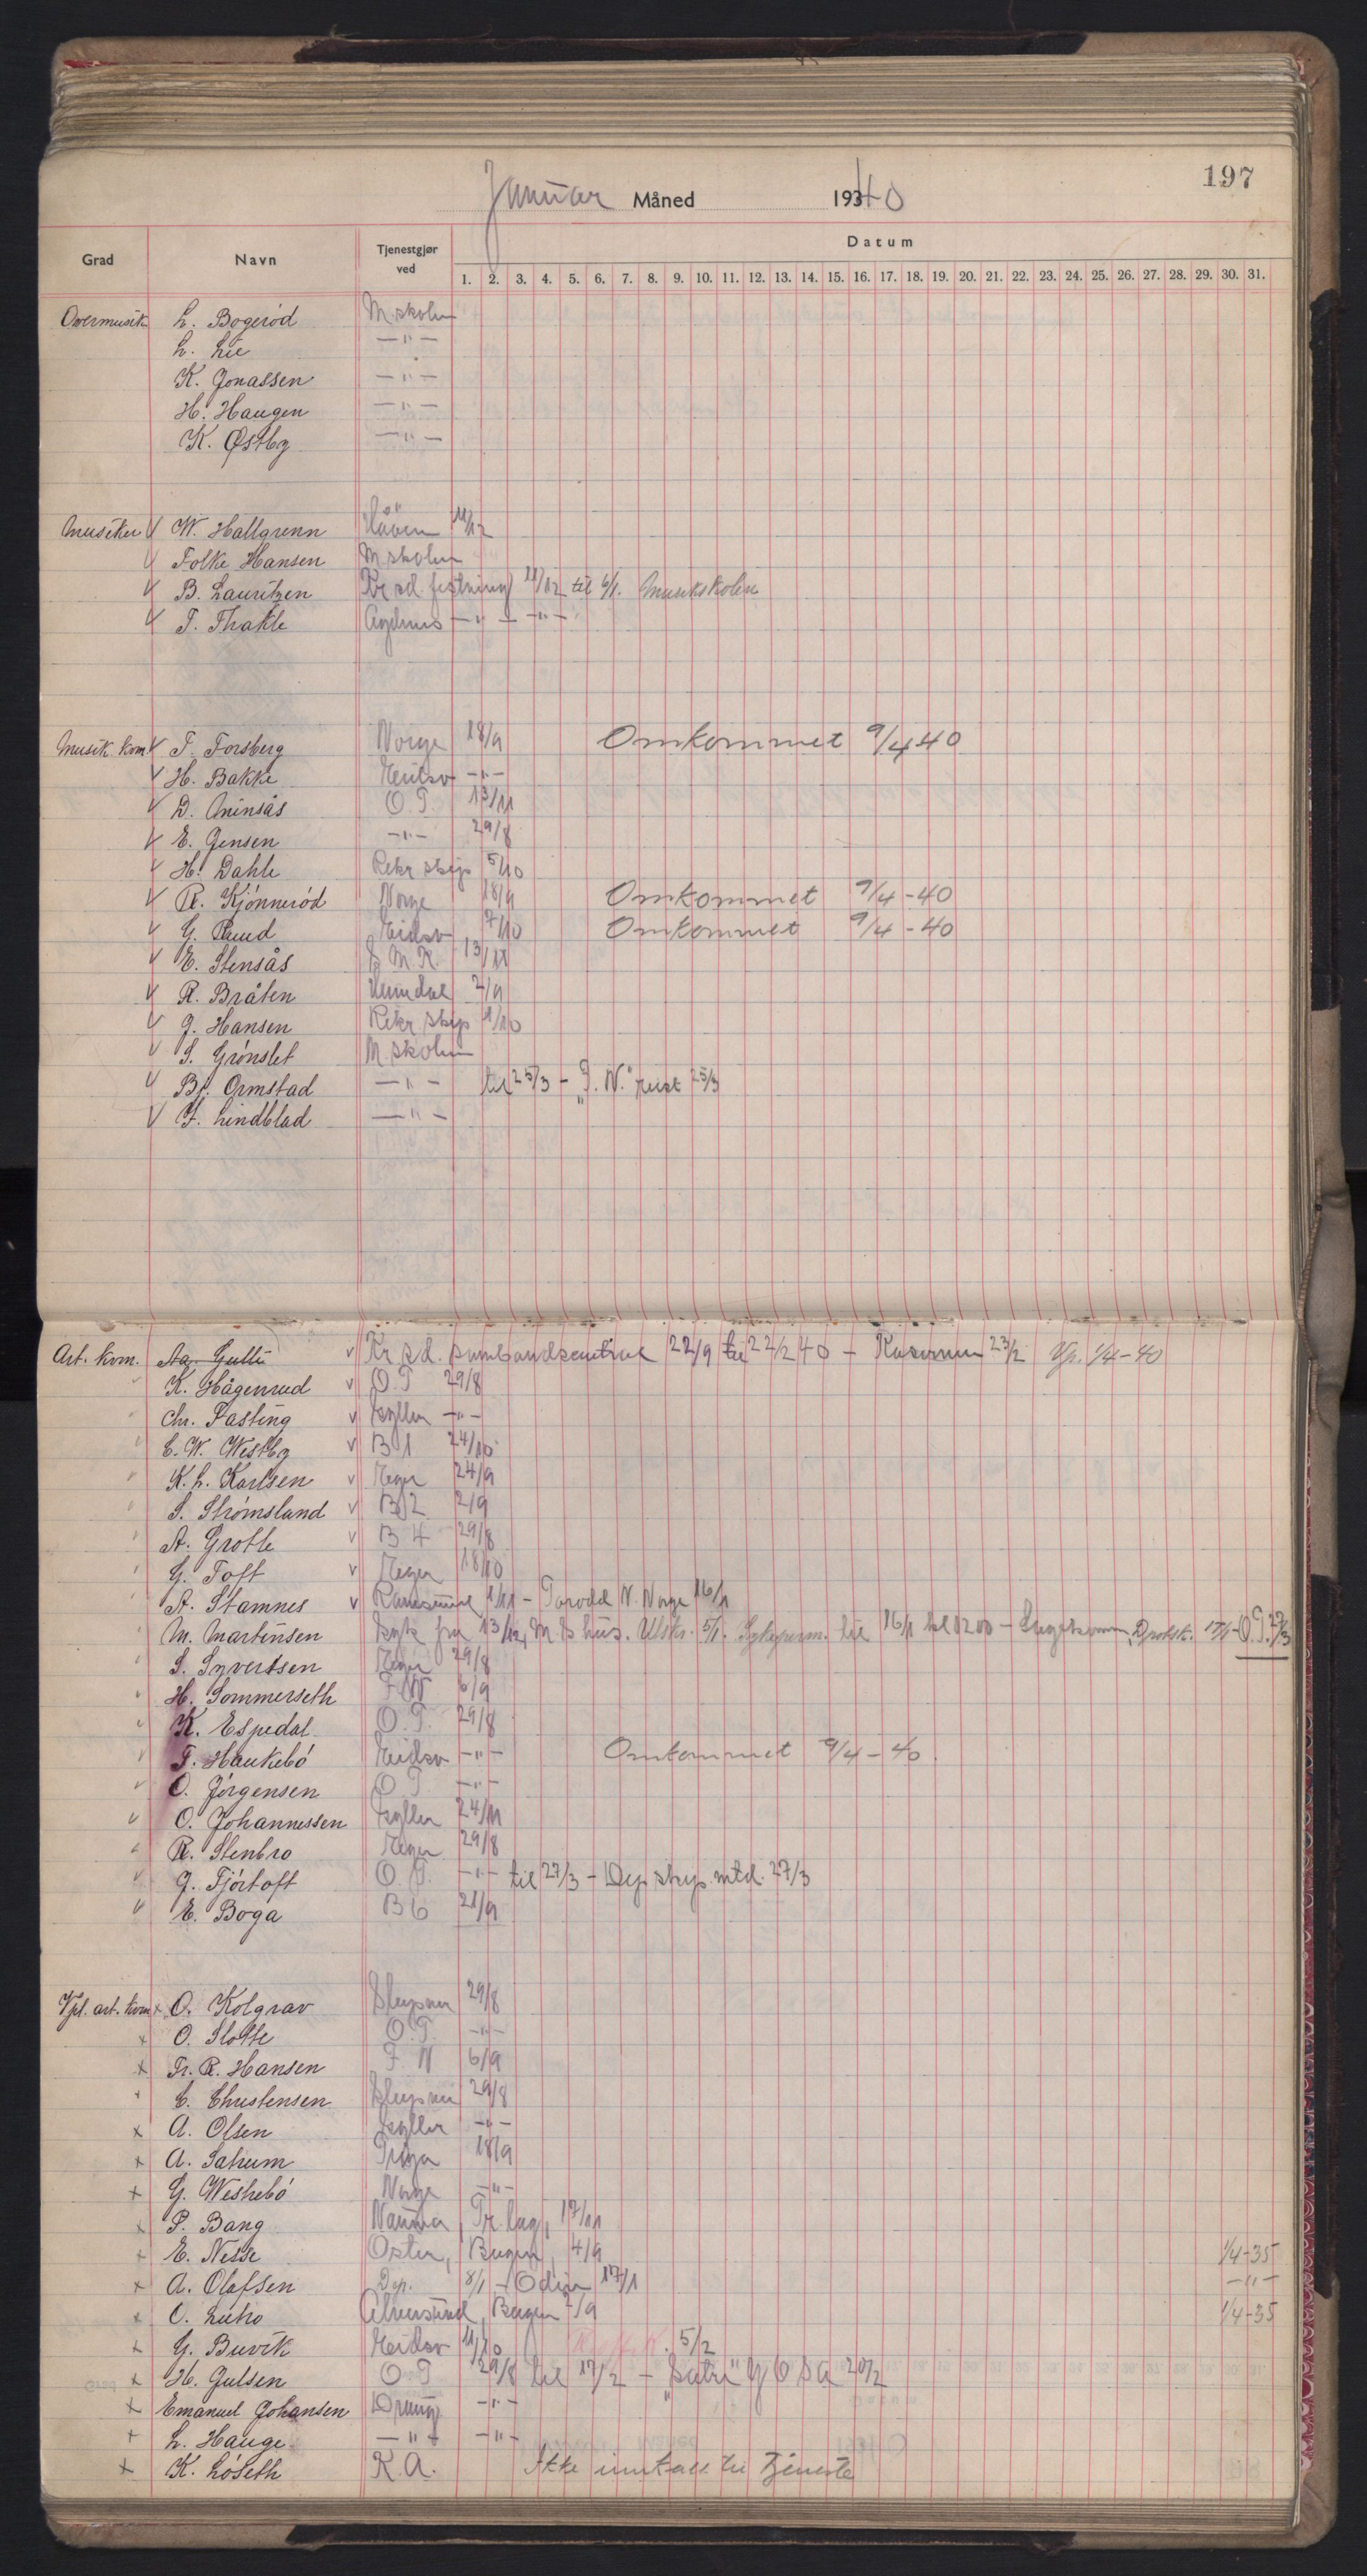 197
Januar Måned 19340
Grad Navn Tjenestgjør ved Datum
1. 2. 3. 4. 5. 6. 7. 8. 9. 10. 11. 12. 13. 14. 15. 16. 17. 18. 19. 20. 21. 22. 23. 24. 25. 26. 27. 28. 29. 30. 31.
Overmusik L. Bogerød M. skolen
L. Lie —"—
K. Jonassen —"—
H. Haugen —"—
K. Østby —"—
Musiker V W. Hallgrenn 11/12
V Folke Hansen M skolen
V B. Lauritzen Kr sd. festning 11/12 til 6/1. Musikskolen
V T. Thakle —"— —"—
Musik. kvm. V T. Forsberg Norge 18/9 Omkommet 9/4 40
V H. Bakke Eidsv —"—
V D. O.T. 13/11
V E. Jensen —"— 29/8
V H. Dahle Rekr skip 5/10
V R. Kjønnerød Norge 18/9 Omkommet 9/4 - 40
V G. Ruud Eidsv 7/10 Omkommet 9/4 - 40
V E. Stensås S. M. R. 13/11
V R. Bråten Uller 2/9
V J. Hansen Rekr. skip 1/10
V S. Grønslet M. skolen
V Bj. Ormstad —"— til 25/3 - "T. N." 25/3
V F. Lindblad —"—
Art. kvm. Aa. Gulli v Kr sd. sambandsentral 22/9 til 22/2 40 - Kasernen 23/2 Vp. 1/4-40
K. Hågenrud v O.T 29/8
Chr. Fasting v Gyller —"—
C. W. Westby v B 1 24/10
K. L. Karlsen v Æger 24/9
S. Strømsland v B 2 2/9
A. Grotle v B 4 29/8
G. Toft v Æger 18/10
A. Stamnes v Ramsund 1/11 - N. Norge 16/1
M. Martinsen Syk fra 13/12, M. s hus. Utskr. 5/1. Sykeperm. til 16/1 kl 1200 - 17/1 - O.T. 27/3
S. Syvertsen Æger 29/8
H. Sommerseth F N 6/9
K. Espedal O.T. 29/8
T. Haukebø Eidsv —"— Omkommet 9/4 - 40.
O. Jørgensen O T —"—
O. Johannessen Gyller 24/11
R. Stenbro Æger 29/8
J. Fjørtoft O. T. —"— til 27/3 - Dep skip. mtd. 27/3
E. Boga B 6 21/9
Vpl. art. kvm x O. Kolgrav Sleipner 29/8
x O. Slotte O.T. —"—
x Fr. R. Hansen F N 6/9
x C. Christensen Sleipner 29/8
x A. Olsen Gyller —"—
x A. Sahum 18/9
x G. Weshebø Norge —"—
x P. Bang Nauma, Tr. lag, 17/11
x E. Nesse Oster, Bergen, 4/9 1/4-35
x A. Olafsen Dep. 8/1 - Odin 17/1 —"—
x O. Alversund, Bergen 2/9 1/4-35
x G. Buvik Eidsv 11/10 5/2
x H. Gulsen O T 29/8 til 17/2 - "Sætre" Y O S A 20/2
x Emanuel Johansen Draug —"—
x L. Hauge —"— —"—
x K. Løseth K.A. Ikke innkalt til tjeneste